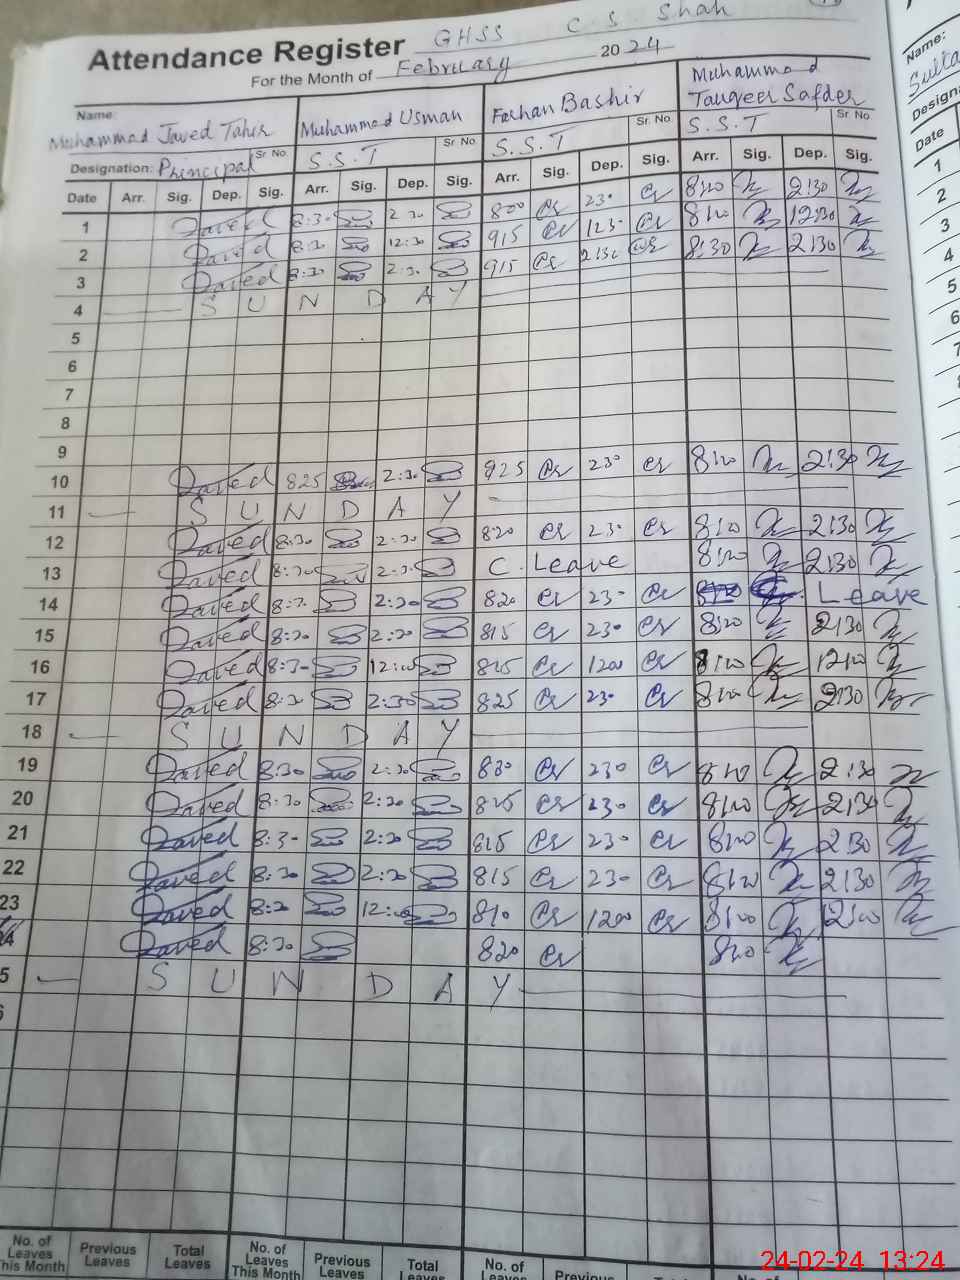 GHSS C S Shah
Attendance Register
For the Month of February 2024
Name: Muhammad Javed Tahir Muhammad Usman Farhan Bashir Muhammad Tauqeer Safder
Designation: Principal Sr No. S.S.T Sr No. S.S.T Sr No. S.S.T Sr No.
Date Arr. Sig. Dep. Sig. Arr. Sig. Dep. Sig. Arr. Sig. Dep. Sig. Arr. Sig. Dep. Sig.
1 Javed 8:30 2:30 800 230 8:00 2:30
2 Javed 8:30 12:30 915 1230 8:00 12:30
3 Javed 8:30 2:30 915 2130 8:30 2:30
4 SUNDAY
5
6
7
8
9
10 Javed 825 2:30 925 230 8:00 2:30
11 SUNDAY
12 Javed 8:30 2:30 820 230 8:00 2:30
13 Javed 8:30 2:30 C. Leave 8:00 2:30
14 Javed 8:30 2:30 820 230 Leave
15 Javed 8:30 2:30 815 230 8:00 2:30
16 Javed 8:30 12:00 815 1200 8:00 12:00
17 Javed 8:30 2:30 825 230 8:00 2:30
18 SUNDAY
19 Javed 8:30 2:30 830 230 8:00 2:30
20 Javed 8:30 2:30 825 230 8:00 2:30
21 Javed 8:30 2:30 815 230 8:00 2:30
22 Javed 8:30 2:30 815 230 8:00 2:30
23 Javed 8:30 12:00 810 1200 8:00 12:00
Javed 8:30 820 8:00
5 SUNDAY
No. of Leaves This Month Previous Leaves Total Leaves No. of Leaves This Month Previous Leaves Total Leaves No. of Leaves Previous Total No. of
Name:
Date
1
2
3
4
5
6
7
24-02-24 13:24